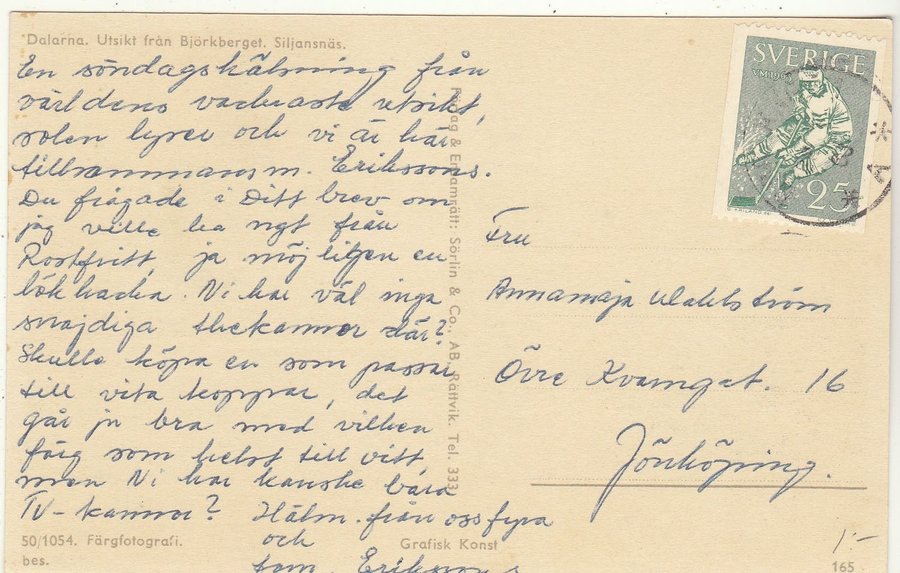 Dalarna. Utsikt från Björkberget. Siljansnäs.
En söndagshälsning från
världens vackraste utsikt,
solen lyser och vi är här
tillsammans m. Erikssons.
Du frågade i Ditt brev om
jag ville ha ngt från
Rostfritt, ja möjligen en
lökhacka. Ni har väl inga
snajdiga thekannor där?
Skulle köpa en som passar
till vita koppar, det
går ju bra med vilken
färg som helst till vitt,
men Ni har kanske bara
TV-kannor? Hälsn. från oss fyra
och
fam. Erikssons
50/1054. Färgfotografi.
bes.
Förlag & Ensamrätt: Sörlin & Co., AB, Rättvik. Tel. 333
Grafisk Konst
SVERIGE
VM 1963
25
Fru
Annamaja Wahlström
Övre Kvarngat. 16
Jönköping.
1:-
165